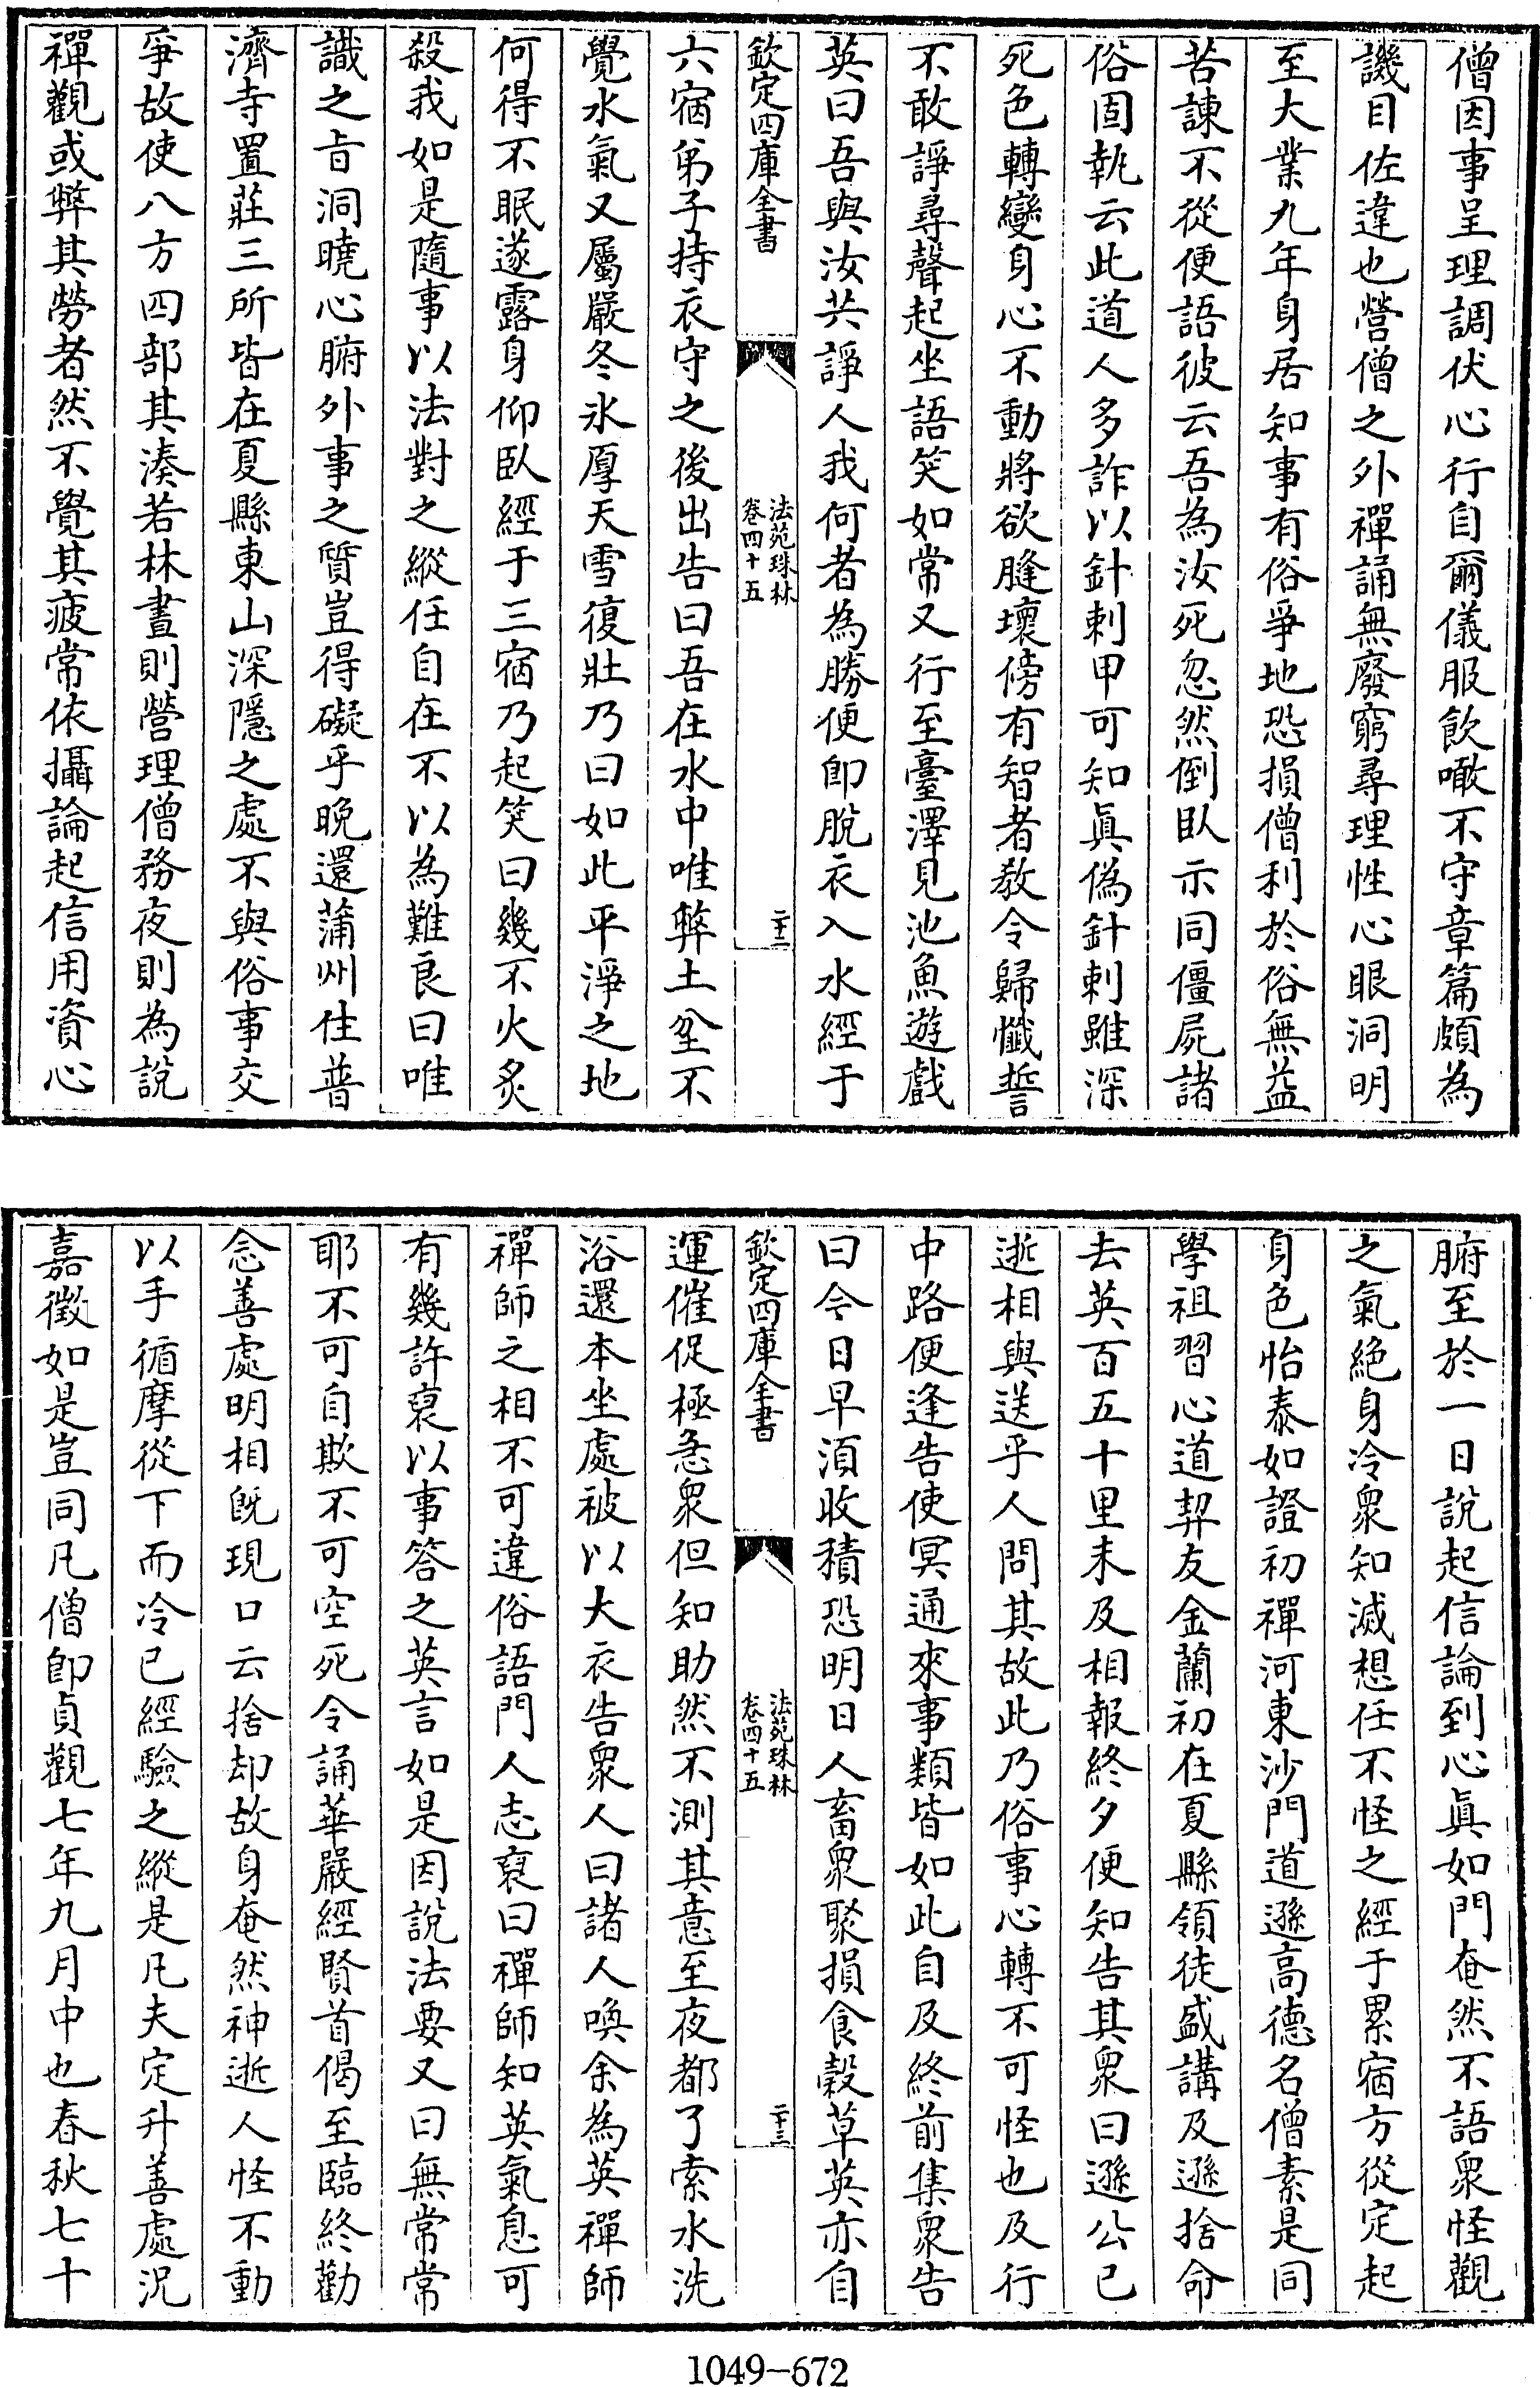 僧因事呈理調伏心行自爾儀服飲噉不守章篇頗為
譏目佐違也營僧之外禪誦無廢窮尋理性心眼洞明
至大業九年身居知事有俗爭地恐損僧利於俗無益
苦諫不從便語彼云吾為汝死忽然倒臥示同僵屍諸
俗固執云此道人多詐以針刺甲可知真偽針刺雖深
死色轉變身心不動將欲膖壞傍有智者教令歸懺誓
不敢諍尋聲起坐語笑如常又行至臺澤見池魚遊戲
英曰吾與汝共諍人我何者為勝便即脫衣入水經于
欽定四庫全書
法苑珠林
卷四十五
二十二
六宿弟子持衣守之後出告曰吾在水中唯弊土坌不
覺水氣又屬嚴冬氷厚天雪復壯乃曰如此平淨之地
何得不眠遂露身仰臥經于三宿乃起笑曰幾不火炙
殺我如是隨事以法對之縱任自在不以為難良曰唯
識之旨洞曉心腑外事之質豈得礙乎晚還蒲州住普
濟寺置莊三所皆在夏縣東山深隱之處不與俗事交
爭故使八方四部其湊若林晝則營理僧務夜則為說
禪觀或弊其勞者然不覺其疲常依攝論起信用資心
腑至於一日說起信論到心真如門奄然不語眾怪觀
之氣絕身冷眾知滅想任不怪之經于累宿方從定起
身色怡泰如證初禪河東沙門道遜高德名僧素是同
學祖習心道契友金蘭初在夏縣領徒盛講及遜捨命
去英百五十里未及相報終夕便知告其眾曰遜公已
逝相與送乎人問其故此乃俗事心轉不可怪也及行
中路便逢告使冥通來事類皆如此自及終前集眾告
曰今日早須收積恐明日人畜眾聚損食穀草英亦自
欽定四庫全書
法苑珠林
卷四十五
二十三
運催促極急眾但知助然不測其意至夜都了索水洗
浴還本坐處被以大衣告眾人曰諸人喚余為英禪師
禪師之相不可違俗語門人志褒曰禪師知英氣息可
有幾許褒以事答之英言如是因說法要又曰無常常
耶不可自欺不可空死令誦華嚴經賢首偈至臨終勸
念善處明相既現口云捨却故身奄然神逝人怪不動
以手循摩從下而冷已經驗之縱是凡夫定升善處況
嘉徵如是豈同凡僧即貞觀七年九月中也春秋七十
1049-672